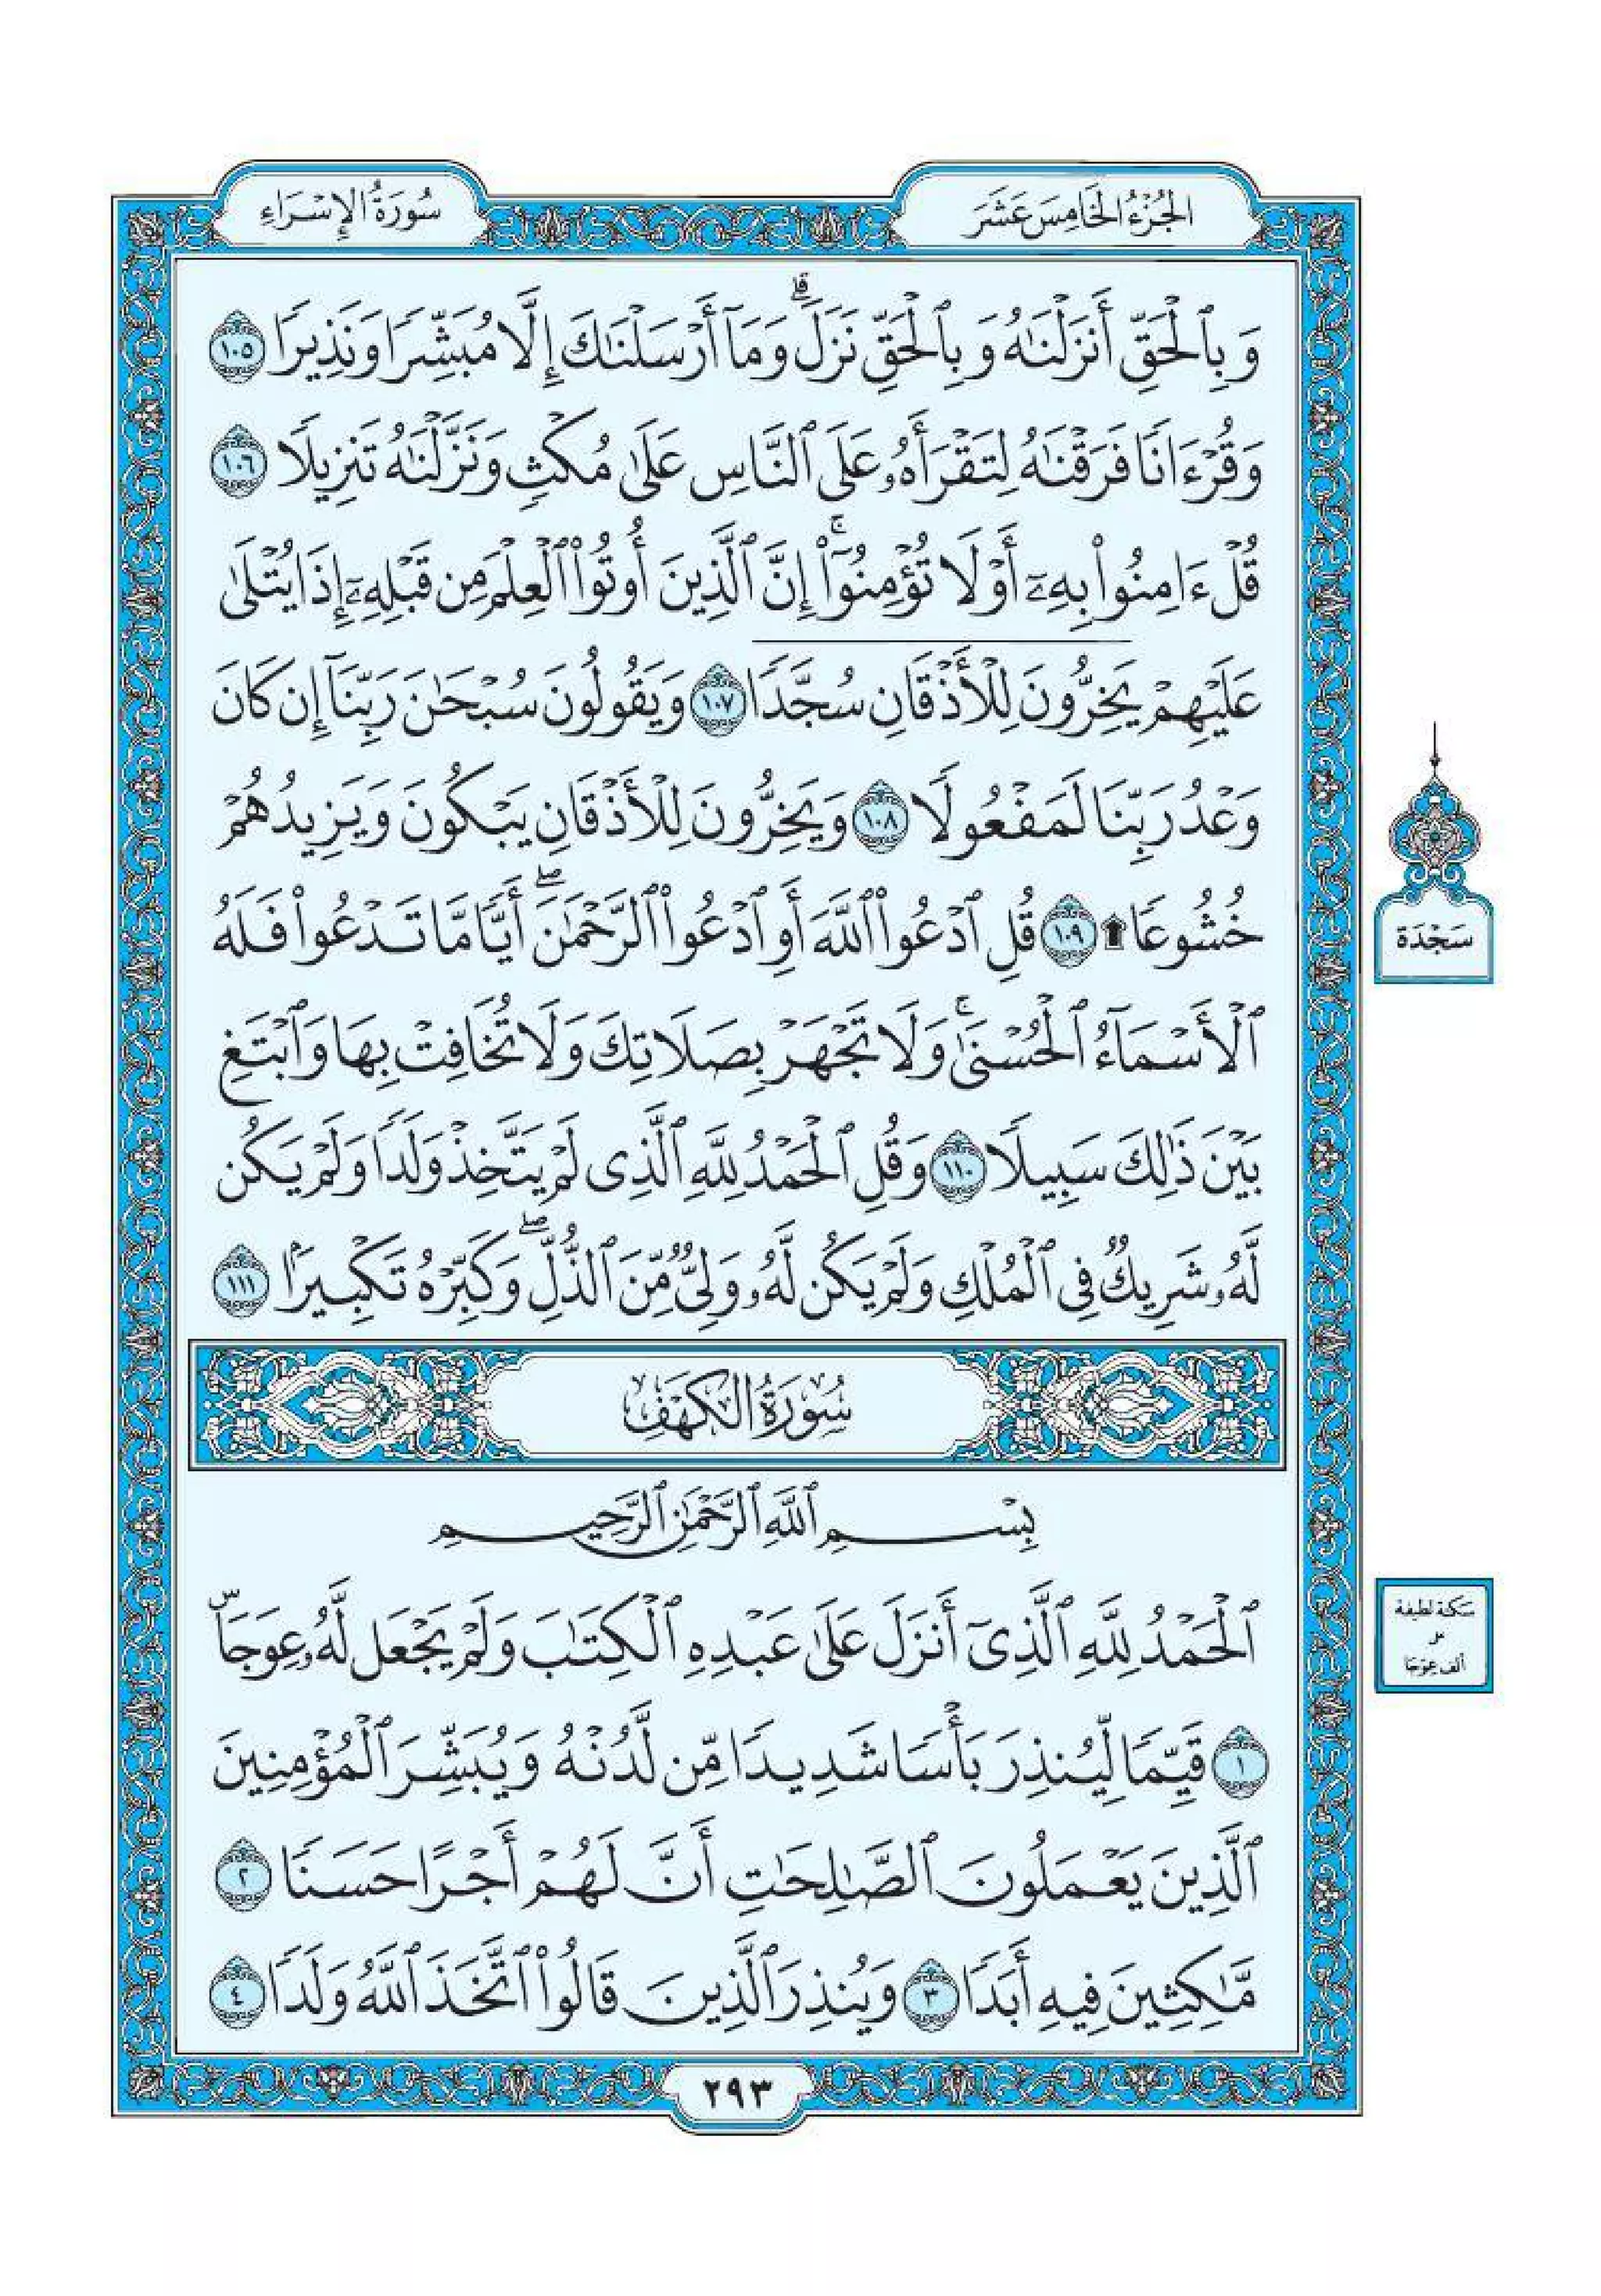 الجُزْءُ الخَامِسَ عَشَرَ
سُورَةُ الإِسْرَاءِ
وَبِٱلْحَقِّ أَنزَلْنَٰهُ وَبِٱلْحَقِّ نَزَلَۗ وَمَآ أَرْسَلْنَٰكَ إِلَّا مُبَشِّرًا وَنَذِيرًا ١٠٥
وَقُرْءَانًا فَرَقْنَٰهُ لِتَقْرَأَهُۥ عَلَى ٱلنَّاسِ عَلَىٰ مُكْثٍ وَنَزَّلْنَٰهُ تَنزِيلًا ١٠٦
قُلْ ءَامِنُوا۟ بِهِۦٓ أَوْ لَا تُؤْمِنُوٓا۟ۚ إِنَّ ٱلَّذِينَ أُوتُوا۟ ٱلْعِلْمَ مِن قَبْلِهِۦٓ إِذَا يُتْلَىٰ
عَلَيْهِمْ يَخِرُّونَ لِلْأَذْقَانِ سُجَّدًا ١٠٧ وَيَقُولُونَ سُبْحَٰنَ رَبِّنَآ إِن كَانَ
وَعْدُ رَبِّنَا لَمَفْعُولًا ١٠٨ وَيَخِرُّونَ لِلْأَذْقَانِ يَبْكُونَ وَيَزِيدُهُمْ
خُشُوعًا ۩ ١٠٩ قُلِ ٱدْعُوا۟ ٱللَّهَ أَوِ ٱدْعُوا۟ ٱلرَّحْمَٰنَۖ أَيًّا مَّا تَدْعُوا۟ فَلَهُ
ٱلْأَسْمَآءُ ٱلْحُسْنَىٰۚ وَلَا تَجْهَرْ بِصَلَاتِكَ وَلَا تُخَافِتْ بِهَا وَٱبْتَغِ
بَيْنَ ذَٰلِكَ سَبِيلًا ١١٠ وَقُلِ ٱلْحَمْدُ لِلَّهِ ٱلَّذِى لَمْ يَتَّخِذْ وَلَدًا وَلَمْ يَكُن
لَّهُۥ شَرِيكٌ فِى ٱلْمُلْكِ وَلَمْ يَكُن لَّهُۥ وَلِىٌّ مِّنَ ٱلذُّلِّۖ وَكَبِّرْهُ تَكْبِيرًۢا ١١١
سَجْدَة
سُورَةُ الكَهْفِ
بِسْمِ ٱللَّهِ ٱلرَّحْمَٰنِ ٱلرَّحِيمِ
ٱلْحَمْدُ لِلَّهِ ٱلَّذِىٓ أَنزَلَ عَلَىٰ عَبْدِهِ ٱلْكِتَٰبَ وَلَمْ يَجْعَل لَّهُۥ عِوَجَاۜ
١ قَيِّمًا لِّيُنذِرَ بَأْسًا شَدِيدًا مِّن لَّدُنْهُ وَيُبَشِّرَ ٱلْمُؤْمِنِينَ
ٱلَّذِينَ يَعْمَلُونَ ٱلصَّٰلِحَٰتِ أَنَّ لَهُمْ أَجْرًا حَسَنًا ٢
مَّٰكِثِينَ فِيهِ أَبَدًا ٣ وَيُنذِرَ ٱلَّذِينَ قَالُوا۟ ٱتَّخَذَ ٱللَّهُ وَلَدًا ٤
سَكتة لطيفة
على
ألف عِوَجَا
٢٩٣